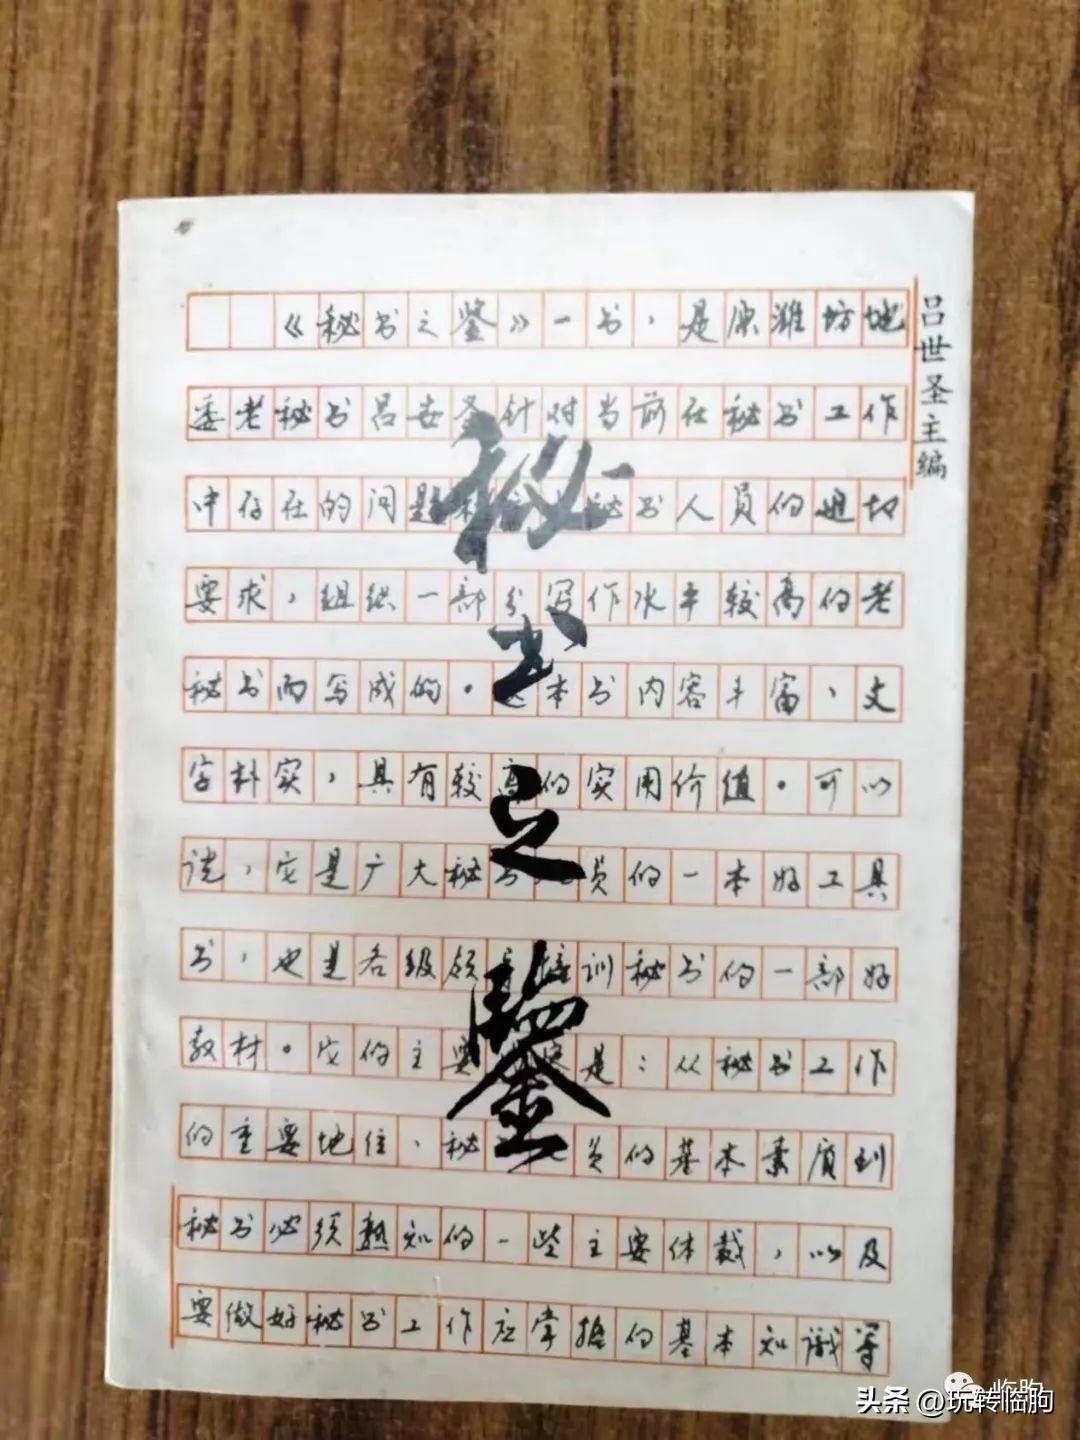 《秘书之鉴》一书，是原潍坊地
委老秘书吕世圣针对当前在秘书工作
中存在的问题秘书人员的迫切
要求，组织一部分写作水平较高的老
秘书而写成的。这本书内容丰富，文
字朴实，具有较高的实用价值。可以
说，它是广大秘书人员的一本好工具
书，也是各级领导培训秘书的一部好
教材。它的主要内容是：从秘书工作
的重要地位、秘书人员的基本素质到
秘书必须熟知的一些主要体裁，以及
要做好秘书工作应掌握的基本知识等
秘书之鑒
吕世圣主编
临朐
头条 @玩转临朐